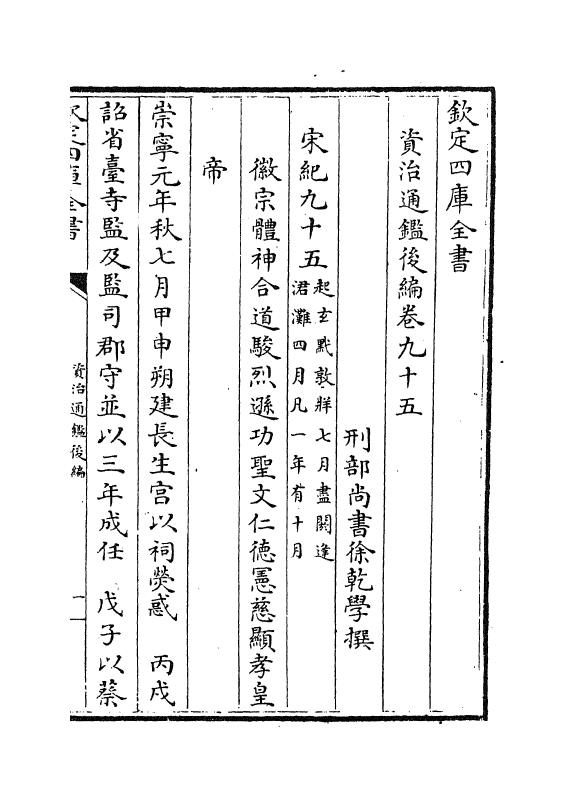 欽定四庫全書
資治通鑑後編卷九十五
刑部尚書徐乾學撰
宋紀九十五起玄黓敦牂七月盡閼逢
涒灘四月凡一年有十月
徽宗體神合道駿烈遜功聖文仁德憲慈顯孝皇
帝
崇寧元年秋七月甲申朔建長生宮以祠熒惑　丙戌
詔省臺寺監及監司郡守並以三年成任　戊子以蔡
欽定四庫全書
資治通鑑後編
一